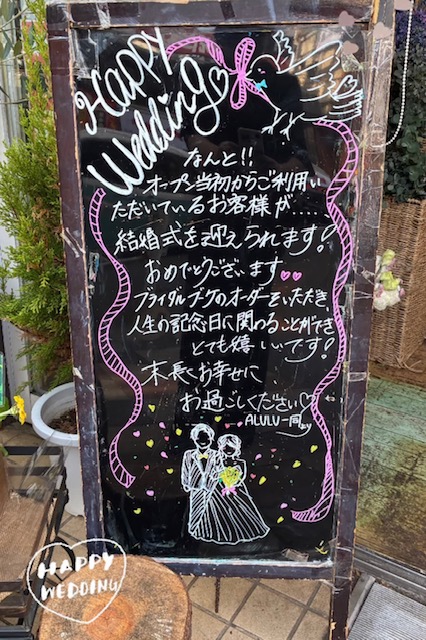 Happy
Wedding
なんと!!
オープン当初からご利用い
ただいているお客様が....
結婚式を迎えられます!
おめでとうございます
ブライダルブーケのオーダーをいただき、
人生の記念日に関わることができ
とても嬉しいです!
末長くお幸せに
お過ごしください
ALULU一同より
HAPPY
WEDDING